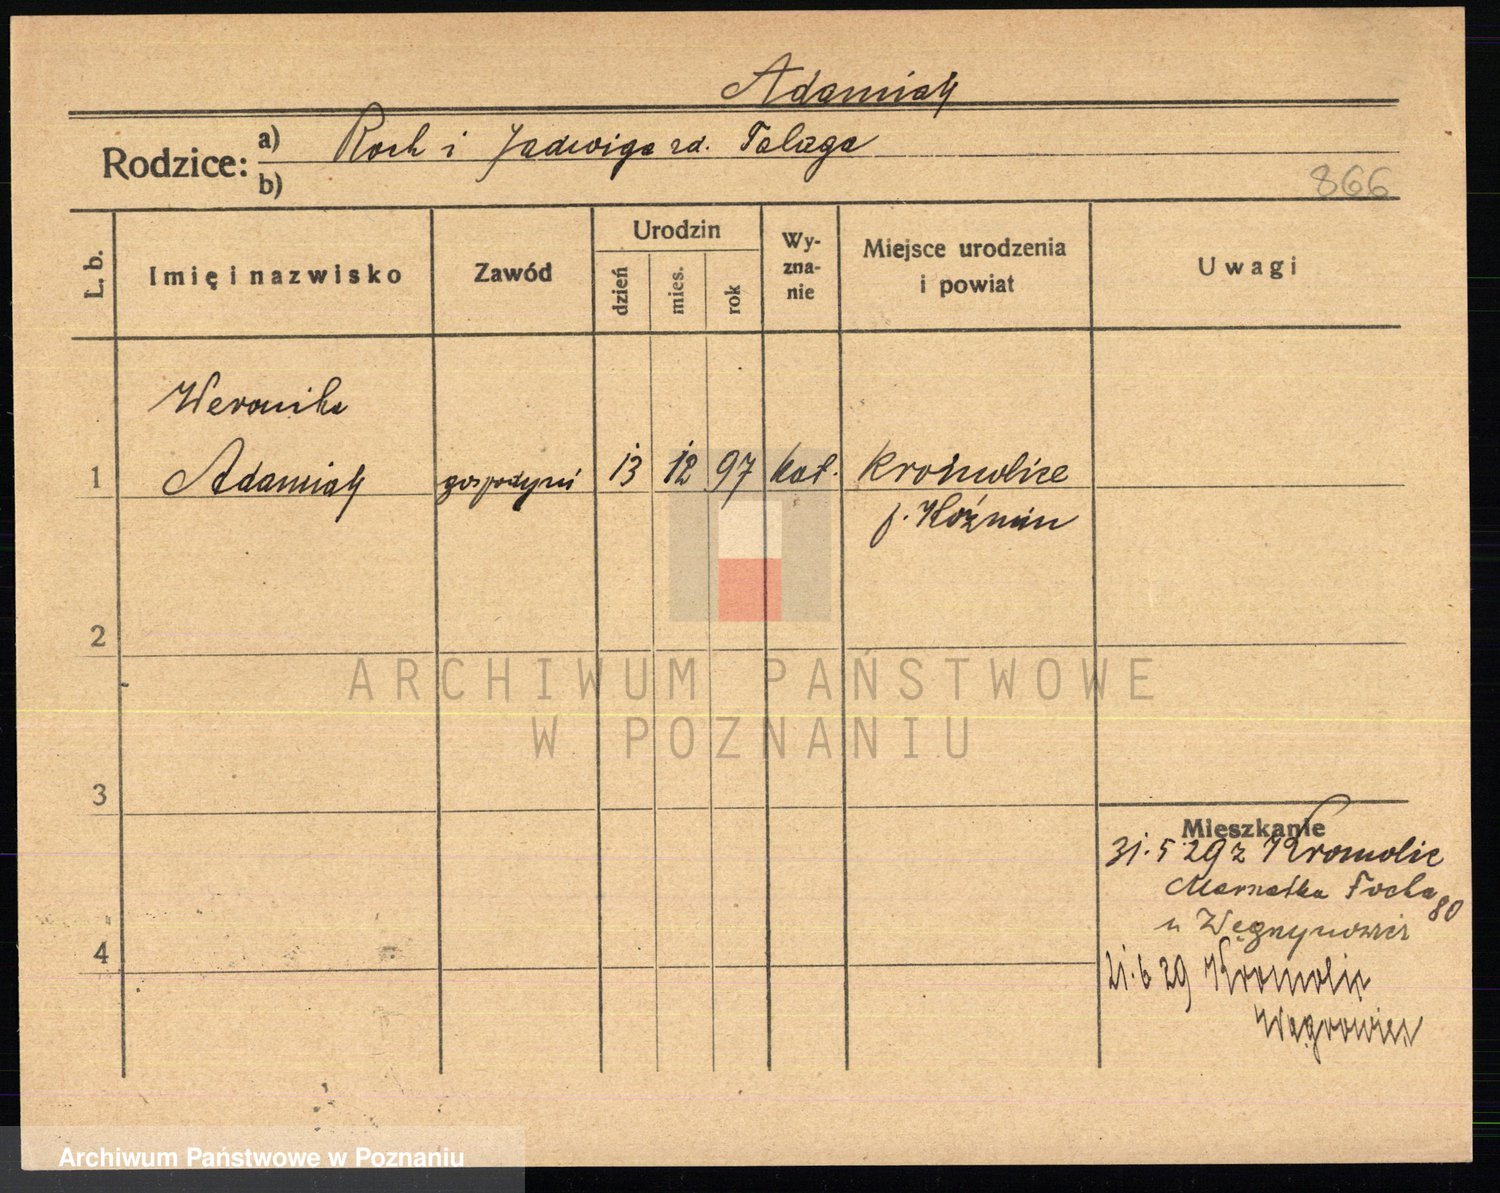 Adamiak
Rodzice: a) Roch i Jadwiga zd. Talaga
b)
866
L. b.
Imię i nazwisko
Zawód
Urodzin
dzień
mies.
rok
Wy-
zna-
nie
Miejsce urodzenia
i powiat
Uwagi
Weronika
1 Adamiak gospodyni 13 12 97 kat. Kromolice
p. Koźmin
2
ARCHIWUM PAŃSTWOWE
W POZNANIU
3
Mieszkanie
31.5.29 z Kromolic
Marszałka Focha 80
u
4
21.6 29 Kromolic
Wągrowiec
Archiwum Państwowe w Poznaniu